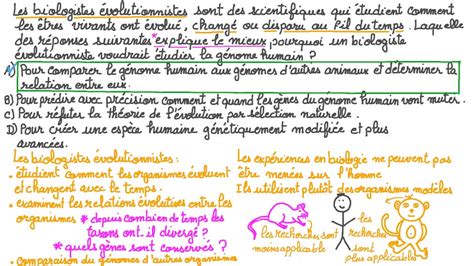 Les biologistes évolutionnistes sont des scientifiques qui étudient comment
les êtres vivants ont évolué, changé ou disparu au fil du temps. Laquelle
des réponses suivantes *explique le mieux, pourquoi un biologiste
évolutionniste voudrait étudier la génome humain ?
A) Pour comparer le génome humain aux génomes d'autres animaux et déterminer la
relation entre eux.
B) Pour prédire avec précision comment et quand les gènes du génome humain vont muter.
C) Pour réfuter la théorie de l'évolution par sélection naturelle.
D) Pour créer une espèce humaine génétiquement modifiée et plus
avancées.
Les biologistes évolutionnistes :
• étudient comment les organismes évoluent
et changent avec le temps.
• examinent les relations évolutives entre les
organismes * depuis combien de temps les
taxons ont-il divergé ?
* quels gènes sont conservés ?
• comparaison du génomes d'autres organismes
Les expériences en biologie ne peuvent pas
être menées sur l'homme
Ils utilisent plutôt des organismes modèles
les recherches sont
moins applicable
les
recherches
sont
plus applicable